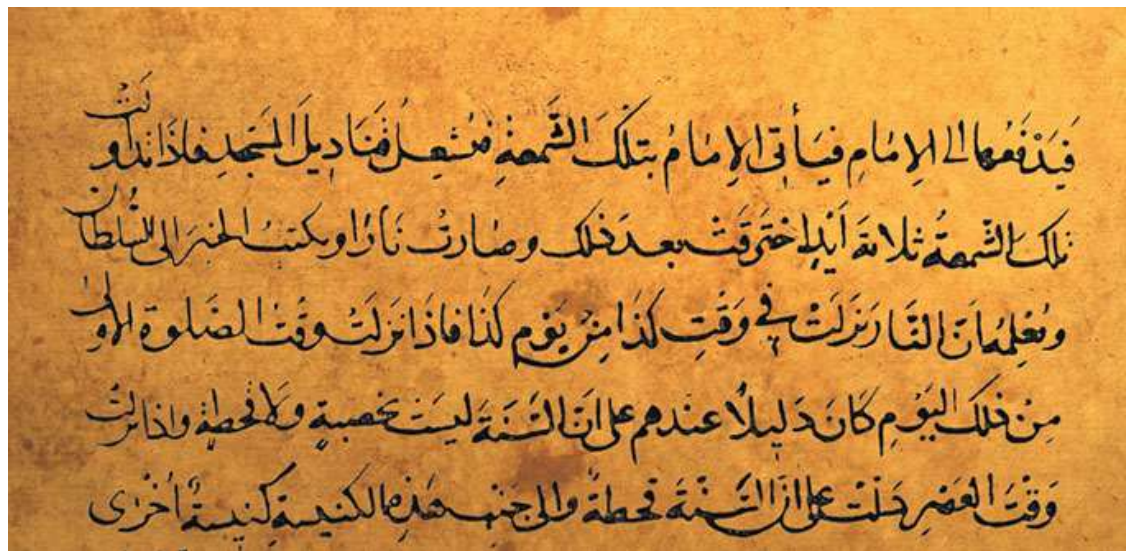 فَيَدْفَعُهَا الى الاِمَامِ فيَأتى الاِمَامُ بتلكَ الشَّمعةِ فيُشعِلُ قَنَادِيلَ المَسْجِدِ فاذَا تداولَتْ
تلكَ الشَّمعةُ ثلاثةَ اَيْدٍ احْتَرقَتْ بعدَ ذلك وصَارتْ نَارًا ويكتبُ الخبرَ الى السُّلطان
ويُعْلِمُه اَنَّ النَّارَ نزلَتْ في وَقْتِ كذَا مِنْ يَوْمِ كذَا فاذَا نزلَتْ وقْتَ الصَّلوة الاُولىٰ
مِنْ ذلكَ اليَوْمِ كَانَ دَلِيلاً عندهم على اَنَّ السَّنَةَ ليسَتْ بخصبةٍ ولا قحطةٍ واذا نزلتْ
وَقْتَ العَصْرِ دَلَّتْ على اَنَّ السَّنَةَ قحطةٌ والى جَنْبِ هَذِهِ الكنيسةِ كَنيسةٌ اُخْرَى